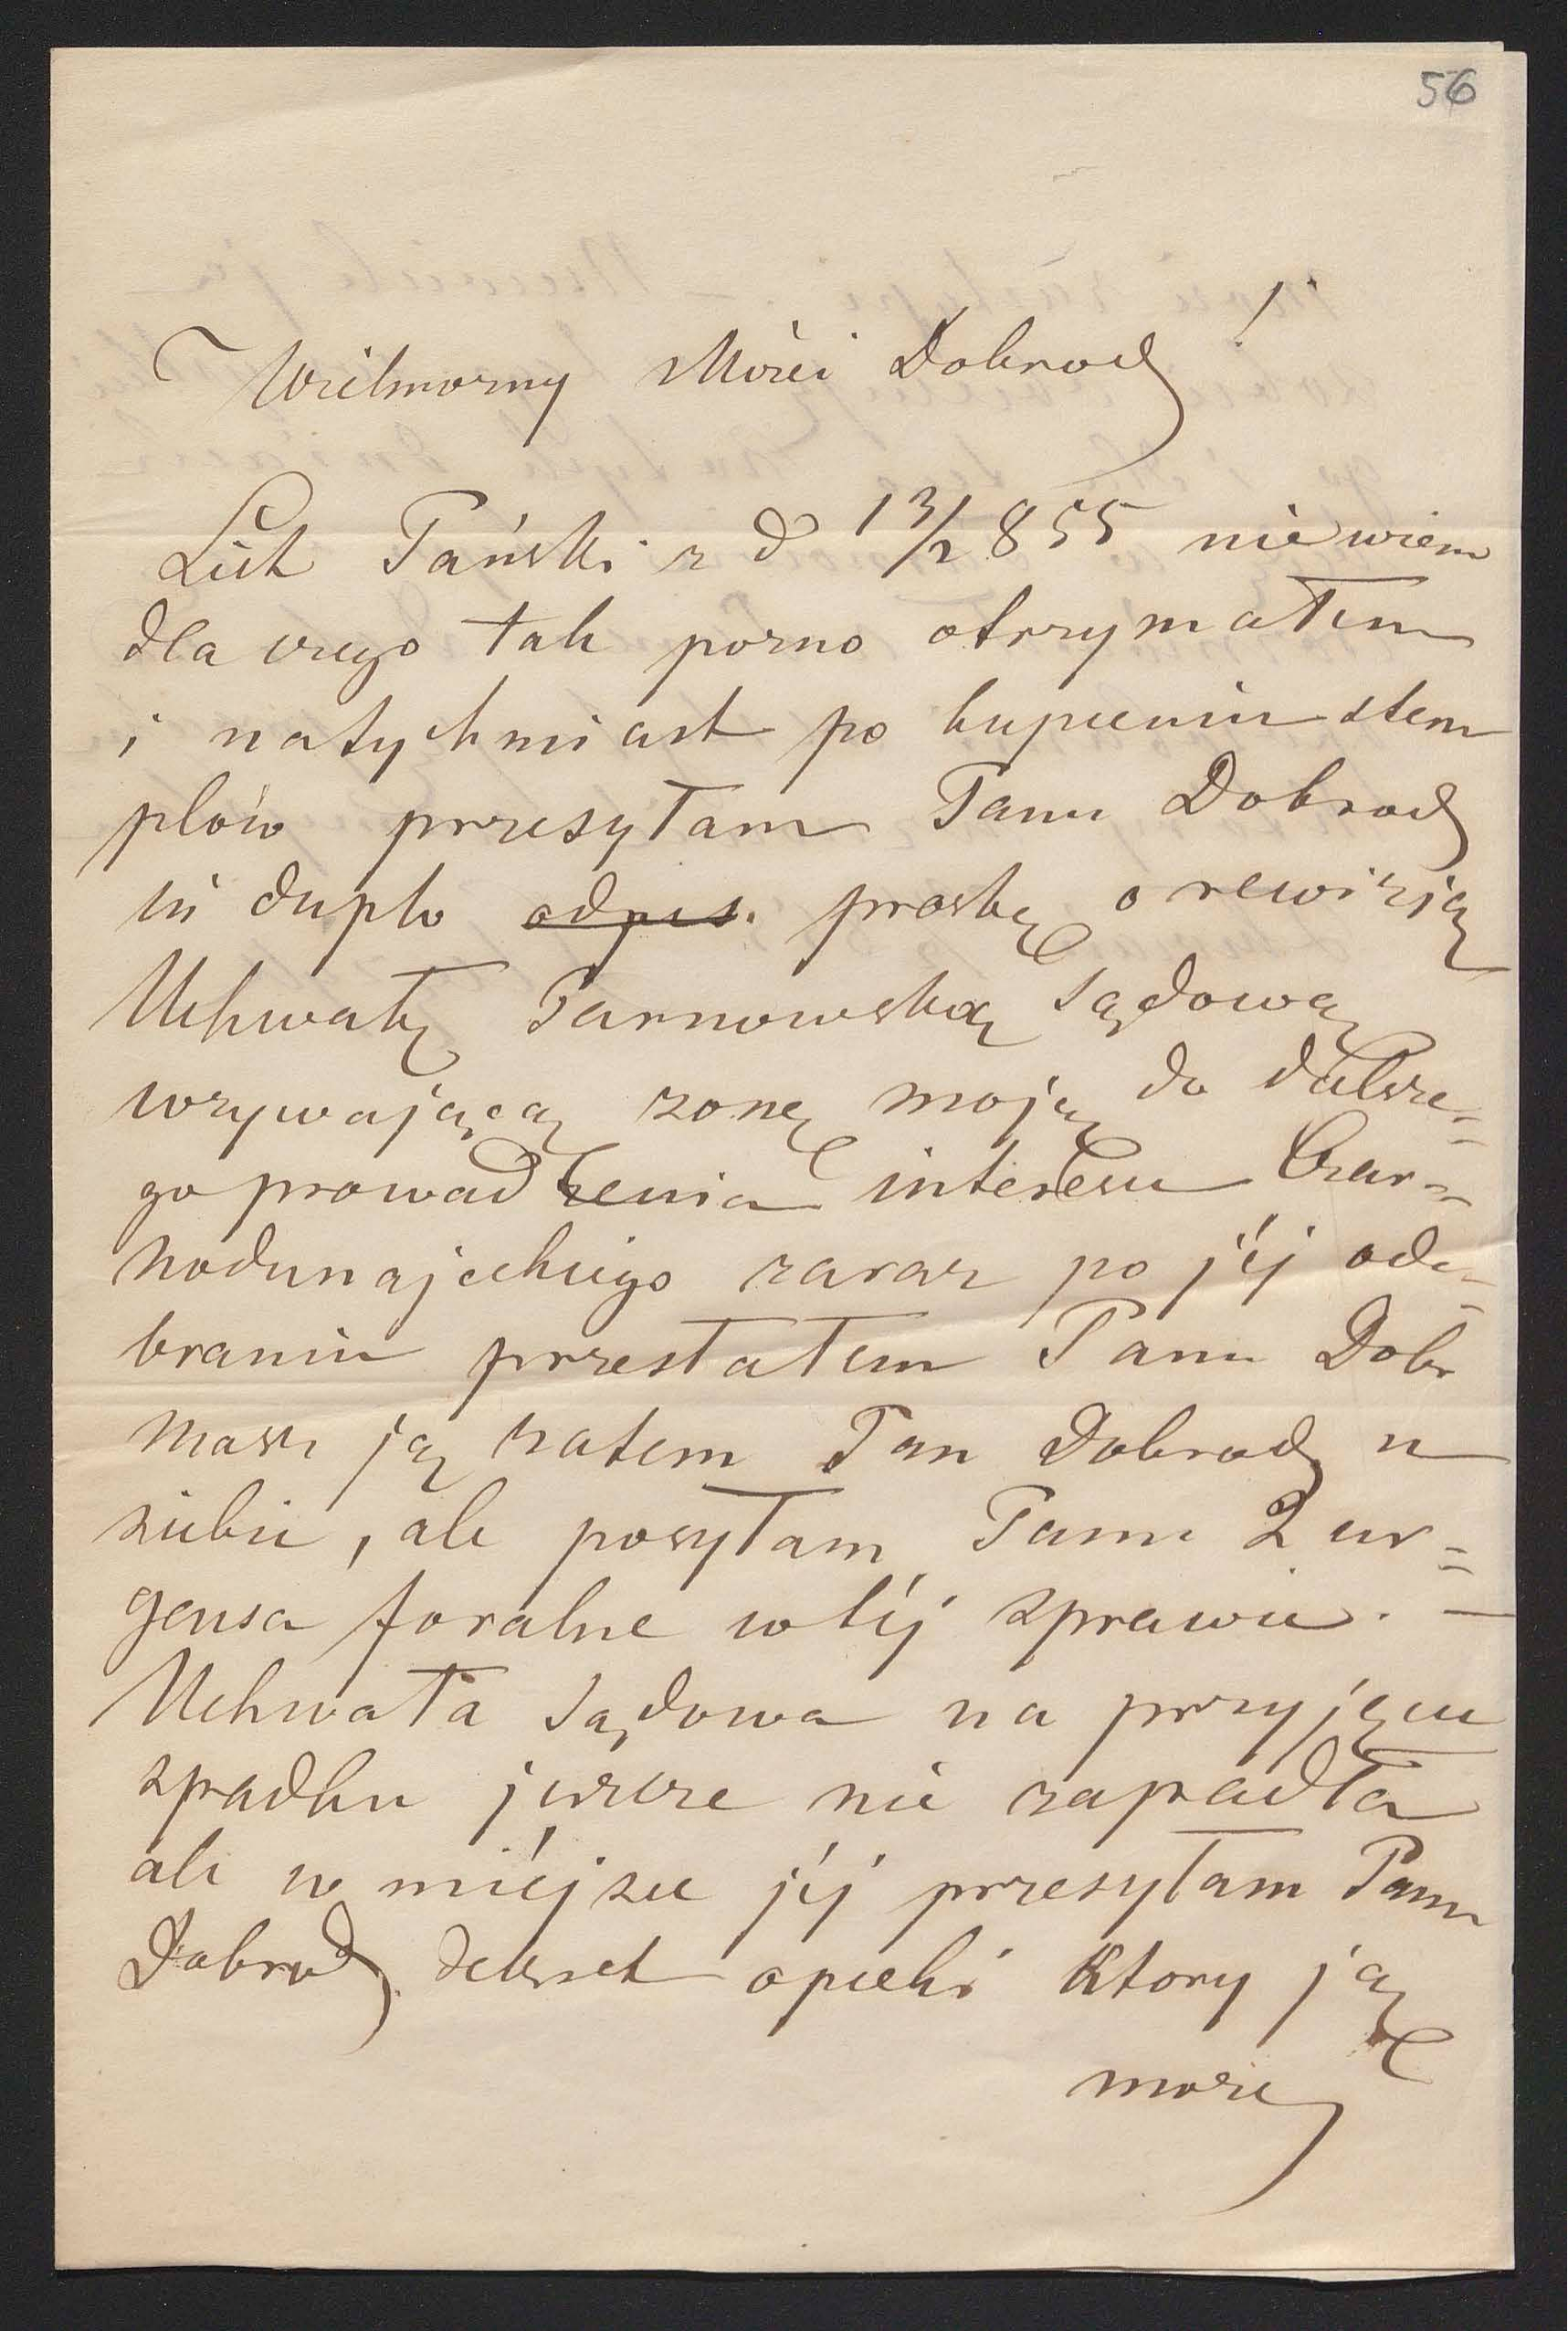 56
Wielmożny Mości Dobrodz!
List Pański z d 13/2 855 nie wiem
dla czego tak pozno otrzymałem
i natychmiast po kupieniu stem
plów przesyłam Panu Dobrodz
in duplo odpis. prosbę o rewizją
Uchwałę Tarnowską sądową
wzywającą zonę moją do dalsze=
go prowadzenia interesu Czar=
nodunajeckiego zaraz po jéj ode=
braniu przesłałem Panu Dobr
masz ją zatem Pan Dobrodz u
siebie, ale posyłam Panu 2 ur=
gensa foralne w téj sprawie. —
Uchwała sądowa na przyjęcie
spadku jeszcze nie zapadła
ale w miéjsce jéj przesyłam Panu
Dobrodz dekret opieki ktory ją
może